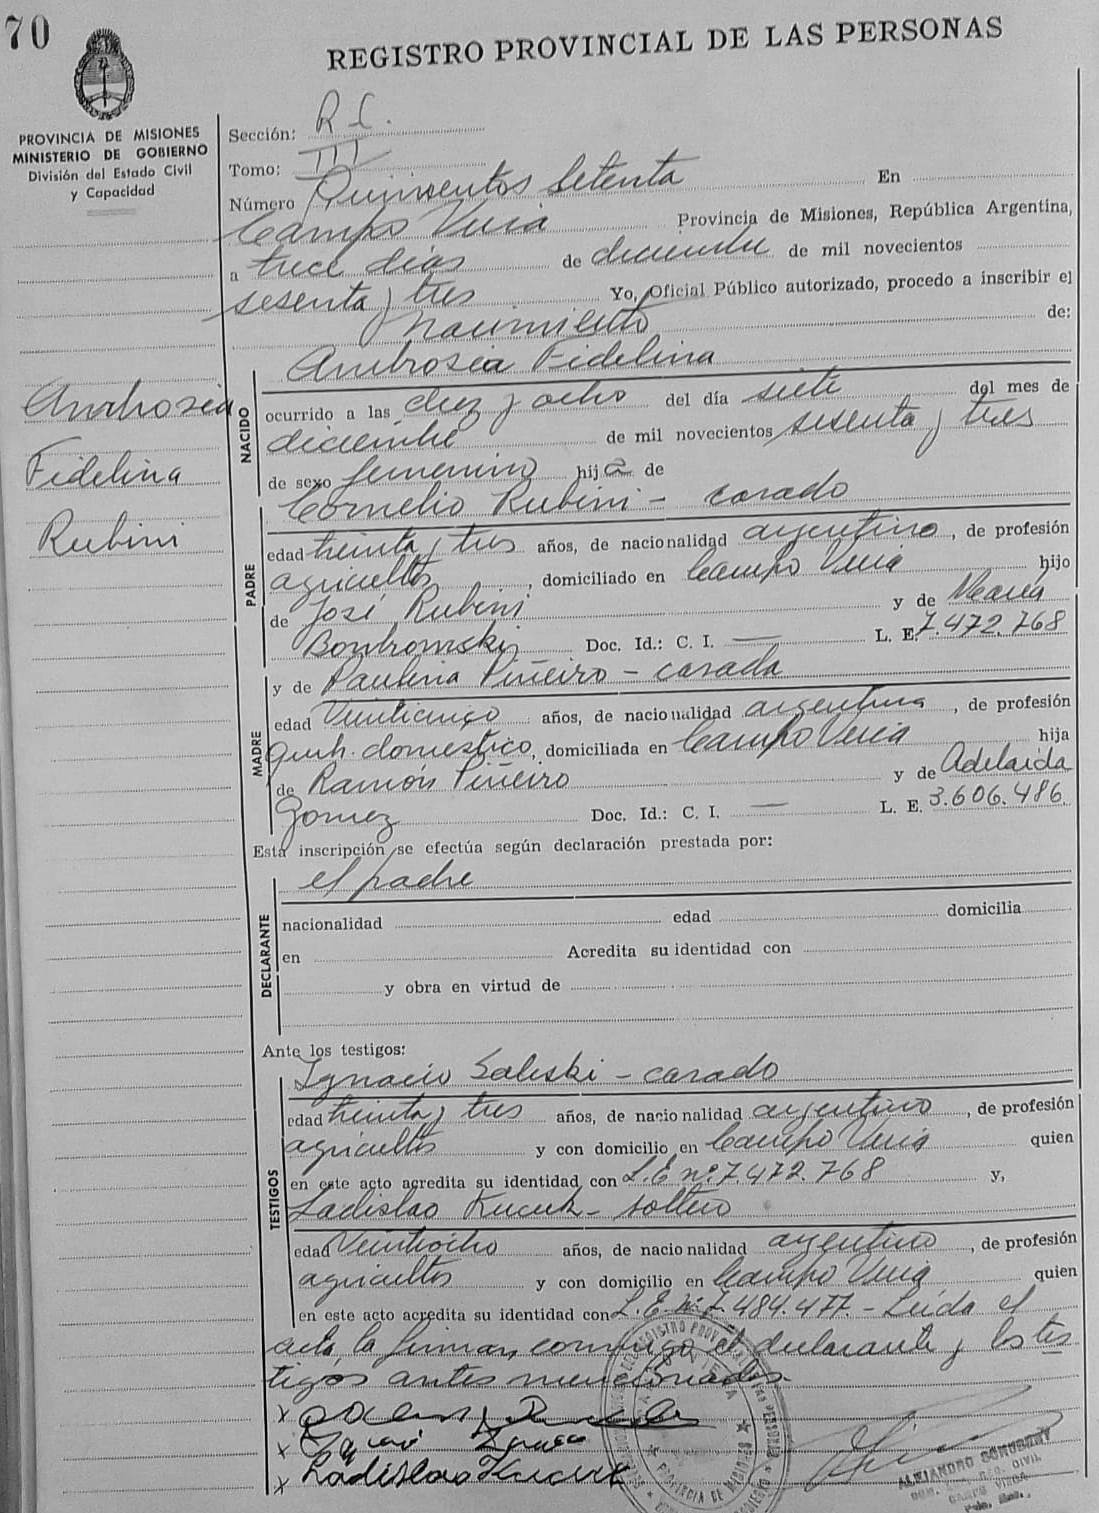 70
REGISTRO PROVINCIAL DE LAS PERSONAS
PROVINCIA DE MISIONES
MINISTERIO DE GOBIERNO
División del Estado Civil
y Capacidad
Sección: R C.
Tomo: III
Número Quinientos Setenta En
Campo Viera Provincia de Misiones, República Argentina,
a trece días de diciembre de mil novecientos
sesenta y tres Yo, Oficial Público autorizado, procedo a inscribir el
nacimiento de:
Ambrosia Fidelina
Ambrosia
Fidelina
Rubini
NACIDO
ocurrido a las diez y ocho del día siete del mes de
diciembre de mil novecientos sesenta y tres
de sexo femenino hija de
Cornelio Rubini - casado
PADRE
edad treinta y tres años, de nacionalidad argentino, de profesión
agricultor, domiciliado en Campo Viera hijo
de José Rubini y de María
Doc. Id.: C. I. — L. E. 7.472.768
y de Paulina Piñeiro - casada
MADRE
edad Veinticinco años, de nacionalidad argentina, de profesión
queh. domestico, domiciliada en Campo Viera hija
de Ramón Piñeiro y de Adelaida
Gomez Doc. Id.: C. I. — L. E. 3.606.486.
Esta inscripción se efectúa según declaración prestada por:
el padre
DECLARANTE
nacionalidad edad domicilia
en Acredita su identidad con
y obra en virtud de
Ante los testigos:
Ignacio Saleski - casado
TESTIGOS
edad treinta y tres años, de nacionalidad argentino, de profesión
agricultor y con domicilio en Campo Viera quien
en este acto acredita su identidad con L.E nº 7.472.768 y,
Ladislao Kucuk - soltero
edad Veintiocho años, de nacionalidad argentino, de profesión
agricultor y con domicilio en Campo Viera quien
en este acto acredita su identidad con L.E. nº 7.484.477. - Leída el
acta, la firman conmigo el declarante y los tes
tigos antes mencionados.
x
x
x Ladislao Kucuk
PROVINCIA DE MISIONES
ALEJANDRO SCHUBERT